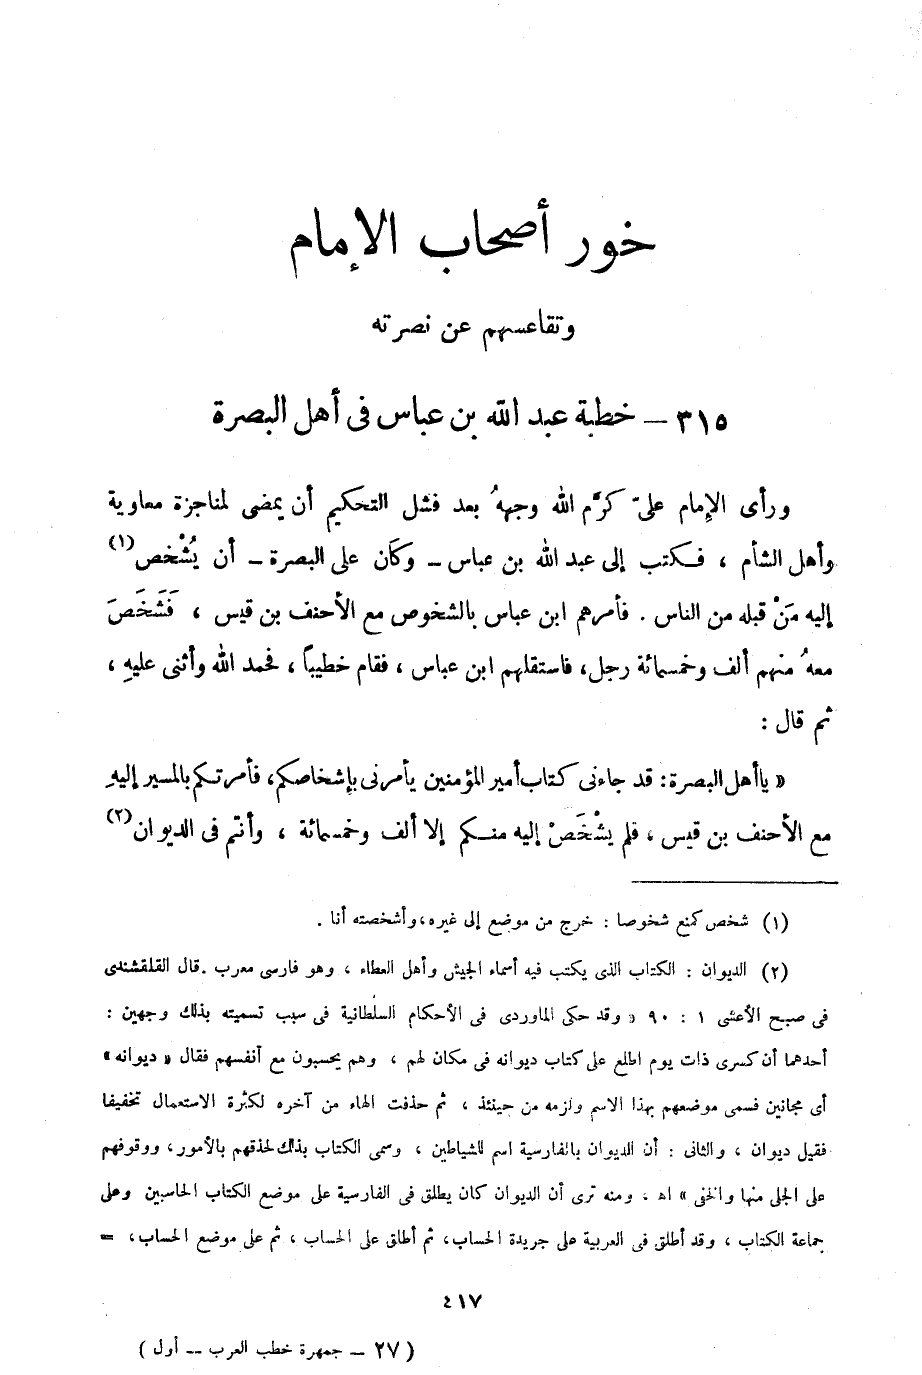 خور أصحاب الإمام
وتقاعسهم عن نصرته
٣١٥ – خطبة عبد الله بن عباس فى أهل البصرة
ورأى الإمام علىّ كرَّم الله وجههُ بعد فشل التحكيم أن يمضى لمناجزة معاوية
وأهل الشأم ، فكتب إلى عبد الله بن عباس – وكان على البصرة – أن يُشْخص(١)
إليه مَنْ قبله من الناس . فأمرهم ابن عباس بالشخوص مع الأحنف بن قيس ، فَشَخَصَ
معهُ منهم ألف وخمسمائة رجل، فاستقلهم ابن عباس ، فقام خطيباً ، فحمد الله وأثنى عليهِ ،
ثم قال :
« يا أهل البصرة: قد جاءنى كتاب أمير المؤمنين يأمرنى بإشخاصكم، فأمرتكم بالمسير إليهِ
مع الأحنف بن قيس ، فلم يشْخَصْ إليه منكم إلا ألف وخمسمائة ، وأنتم فى الديوان(٢)
(١) شخص كمنع شخوصا : خرج من موضع إلى غيره، وأشخصته أنا .
(٢) الديوان : الكتاب الذى يكتب فيه أسماء الجيش وأهل العطاء ، وهو فارسى معرب . قال القلقشندى
فى صبح الأعشى ١ : ٩٠ « وقد حكى الماوردى فى الأحكام السلطانية فى سبب تسميته بذلك وجهين :
أحدهما أن كسرى ذات يوم اطلع على كتاب ديوانه فى مكان لهم ، وهم يحسبون مع أنفسهم فقال « ديوانه »
أى مجانين فسمى موضعهم بهذا الاسم ولزمه من حينئذ ، ثم حذفت الهاء من آخره لكثرة الاستعمال تخفيفا
فقيل ديوان ، والثانى : أن الديوان بالفارسية اسم للشياطين ، وسمى الكتاب بذلك لحذقهم بالأمور، ووقوفهم
على الجلى منها والخفى » اه ، ومنه ترى أن الديوان كان يطلق فى الفارسية على موضع الكتاب الحاسبين وعلى
جماعة الكتاب ، وقد أطلق فى العربية على جريدة الحساب، ثم أطلق على الحساب ، ثم على موضع الحساب، =
٤١٧
( ٢٧ – جمهرة خطب العرب – أول )